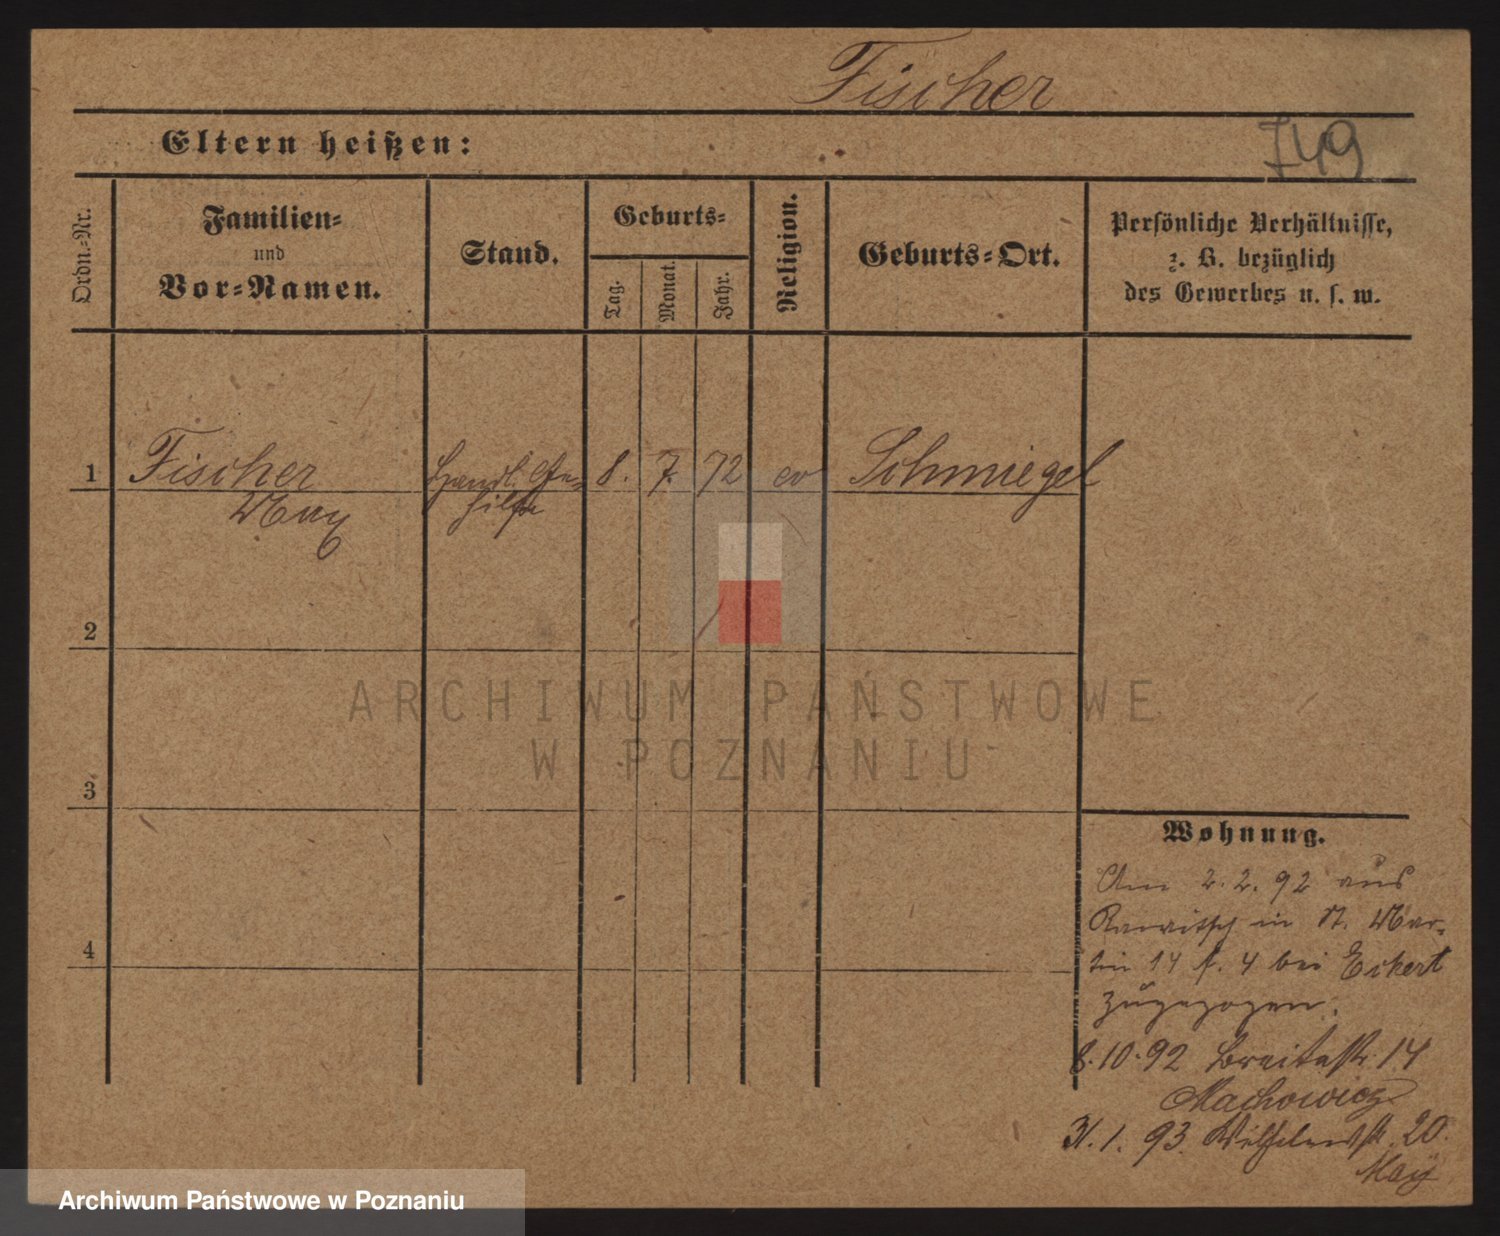 Fischer
Eltern heißen:
749
Ordn.=Nr.
Familien=
und
Vor=Namen.
Stand.
Geburts=
Tag.
Monat.
Jahr.
Religion.
Geburts=Ort.
Persönliche Verhältnisse,
z. B. bezüglich
des Gewerbes u. s. w.
1 Fischer Handl. Ge= 8. 7. 72 ev Schmiegel
Max hilfe
2
ARCHIWUM PAŃSTWOWE
W POZNANIU
3
Wohnung.
Am 2.2.92 aus
Rawitsch in St. Mar=
4
tin 14 b. 4 bei Eckert
zugezogen.
8.10.92 Breitestr. 14
Machowicz
31.1.93. Wilhelmstr. 20.
May
Archiwum Państwowe w Poznaniu